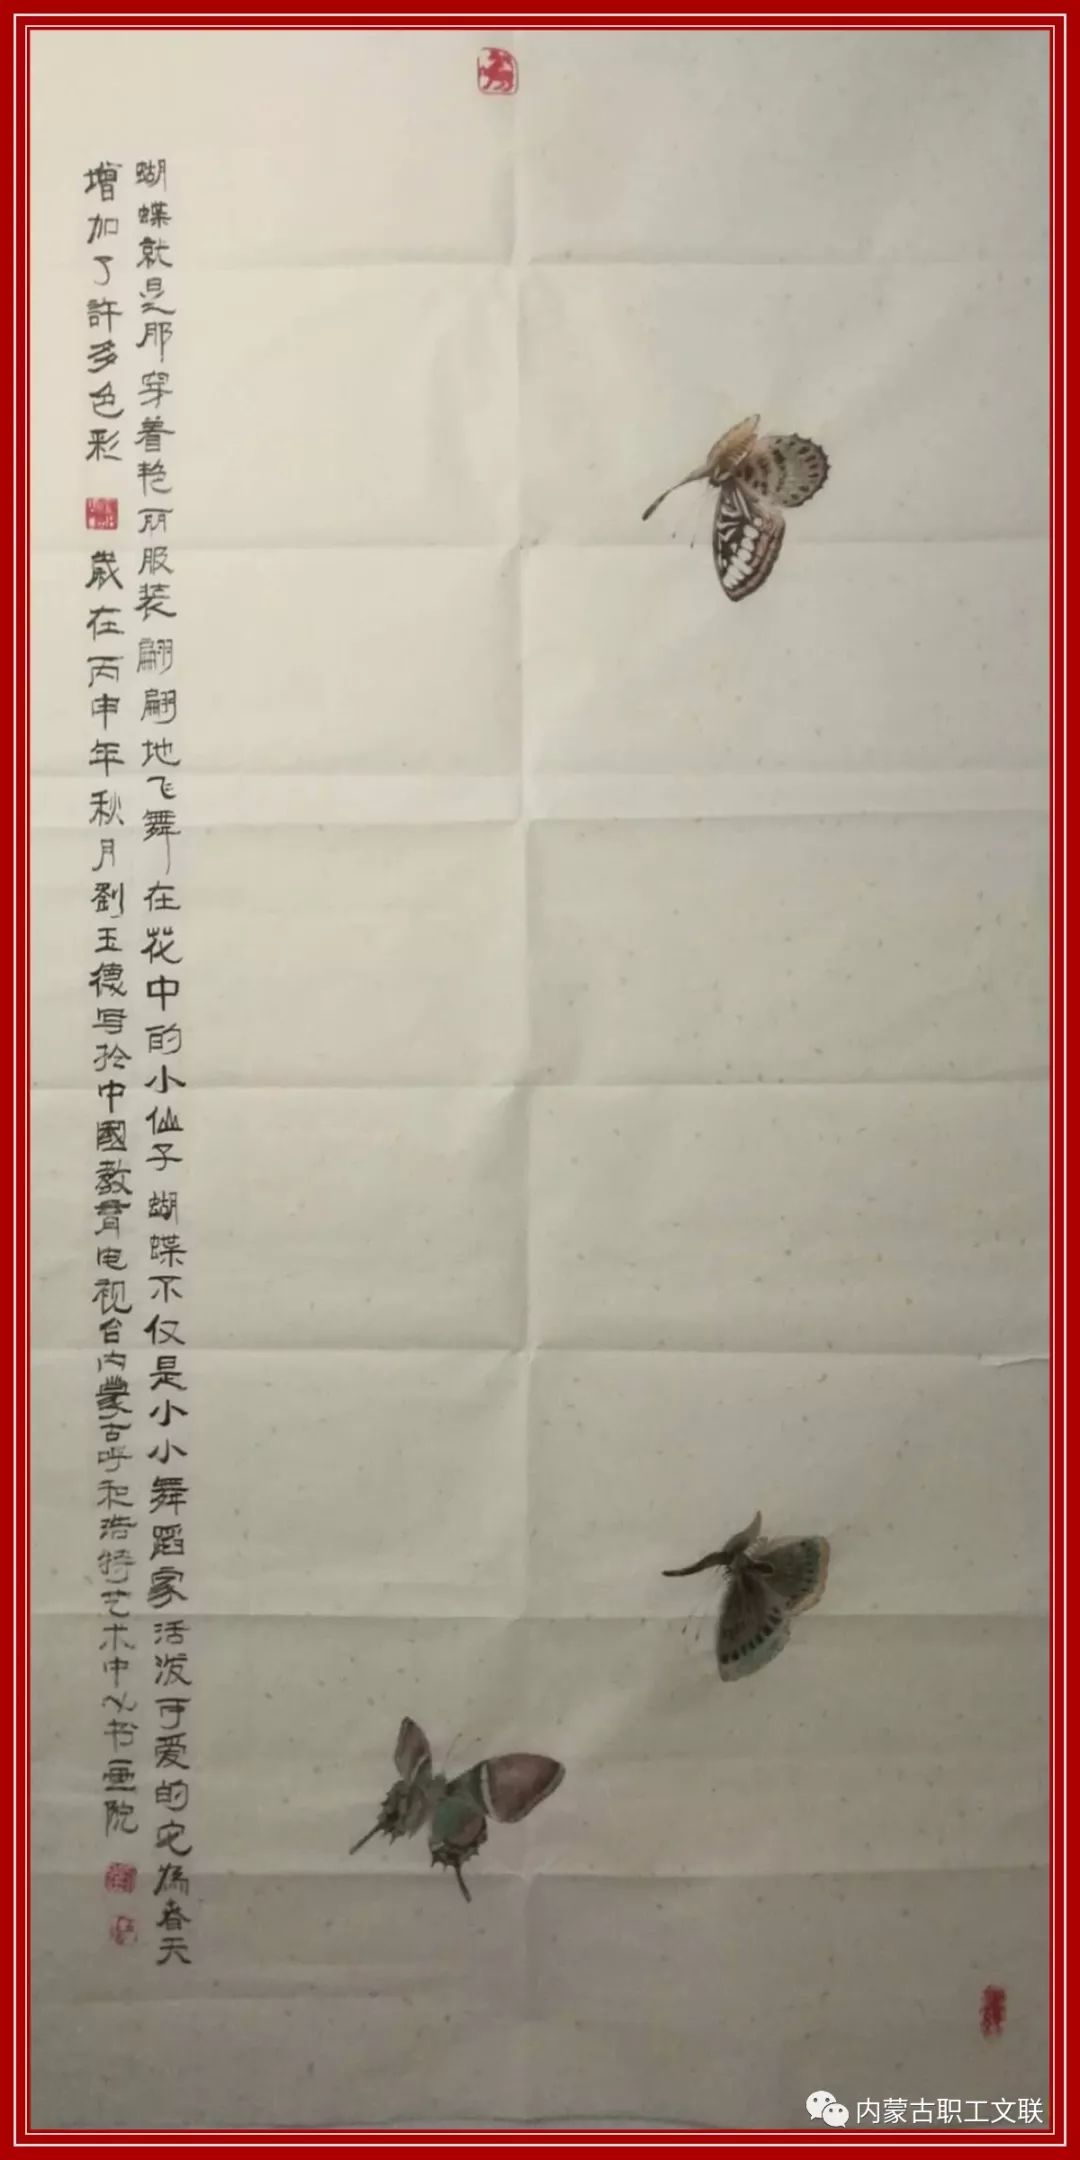 蝴蝶就是那穿着艳丽服装翩翩地飞舞在花中的小仙子蝴蝶不仅是小小舞蹈家活泼可爱的它為春天
增加了許多色彩
歲在丙申年秋月劉玉德写於中國教育电视台内蒙古呼和浩特艺术中心书画院
内蒙古职工文联